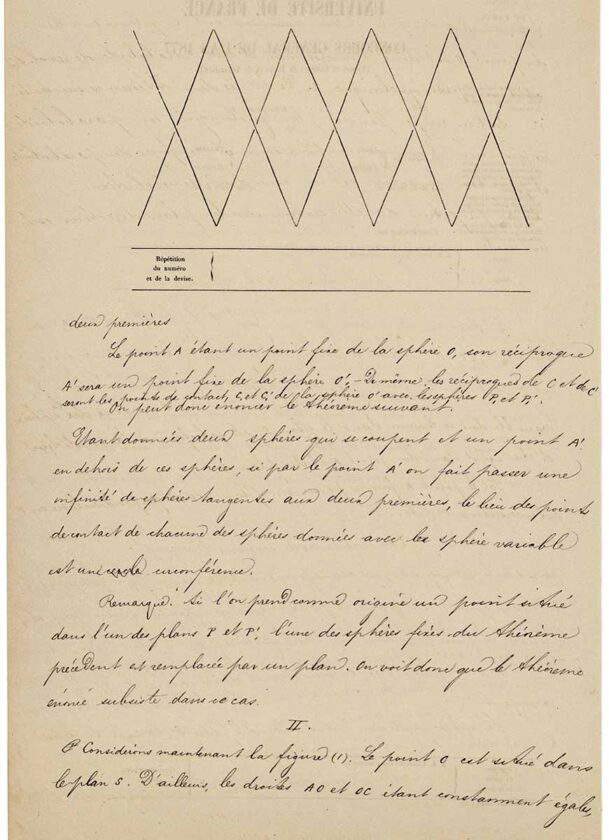 Répétition
du numéro
et de la devise.
deux premières
Le point A étant un point fixe de la sphère O, son réciproque
A' sera un point fixe de la sphère O'. – De même les réciproques de C et de C'
seront les points de contact C, et C,' de la sphère O' avec les sphères P, et P,'.
On peut donc énoncer le théorème suivant.
Etant données deux sphères qui se coupent et un point A'
en dehors de ces sphères, si par le point A' on fait passer une
infinité de sphères tangentes aux deux premières, le lieu des points
de contact de chacune des sphères données avec la sphère variable
est une circonférence.
Remarque. Si l'on prend comme origine un point situé
dans l'un des plans P et P', l'une des sphères fixes du théorème
précédent est remplacée par un plan. On voit donc que le théorème
énoncé subsiste dans ce cas.
II.
1° Considérons maintenant la figure (1). Le point O est situé dans
le plan S. D'ailleurs, les droites AO et OC étant constamment égales,